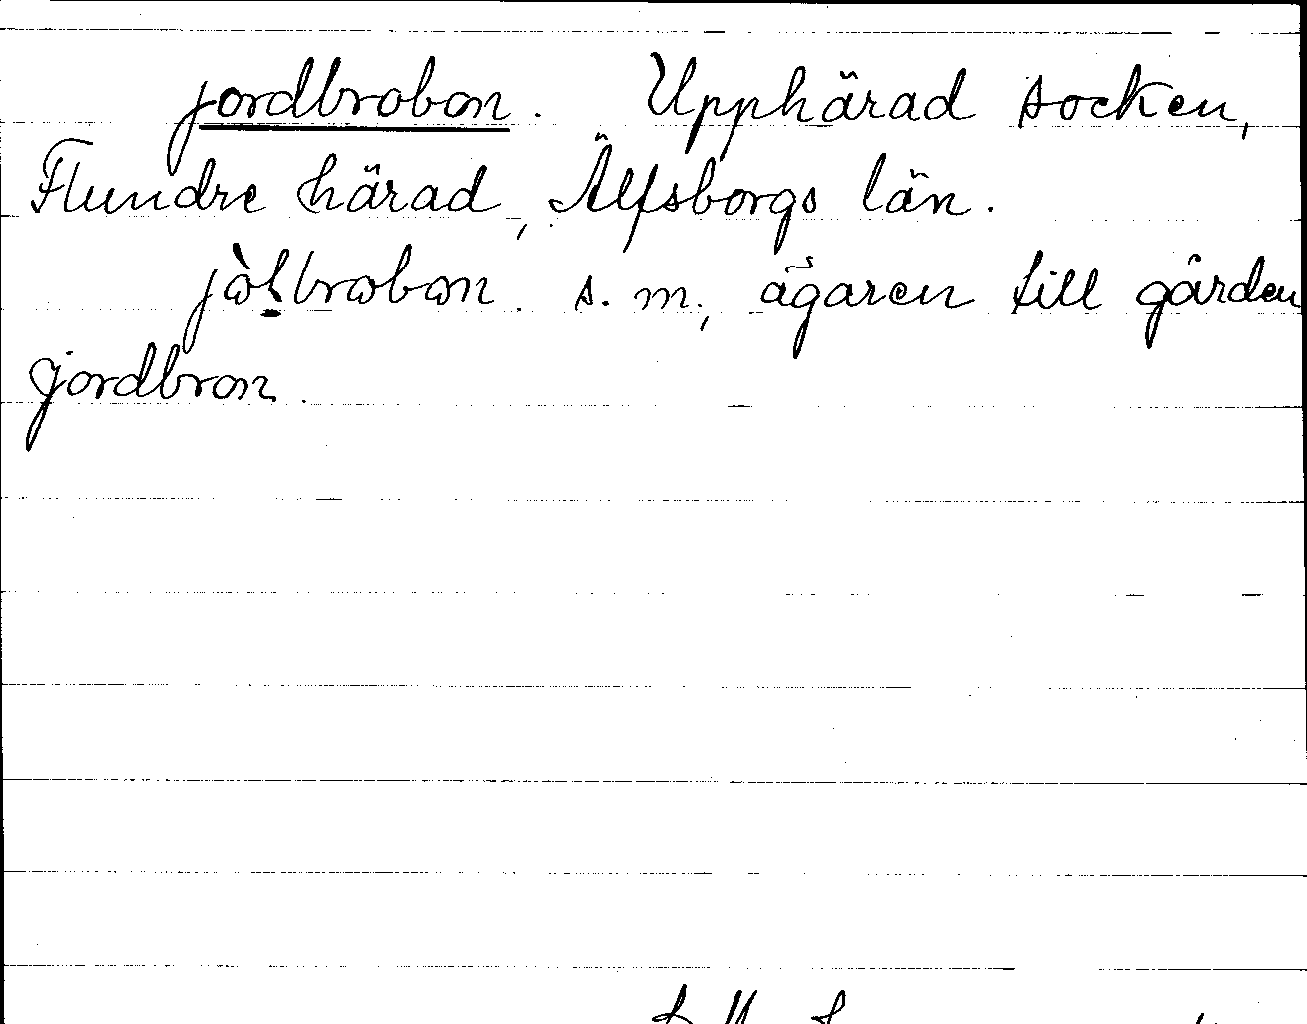 jordbrobon. Upphärad socken,
Flundre härad, Älfsborgs län.
s. m., ägaren till gården
jordbron.